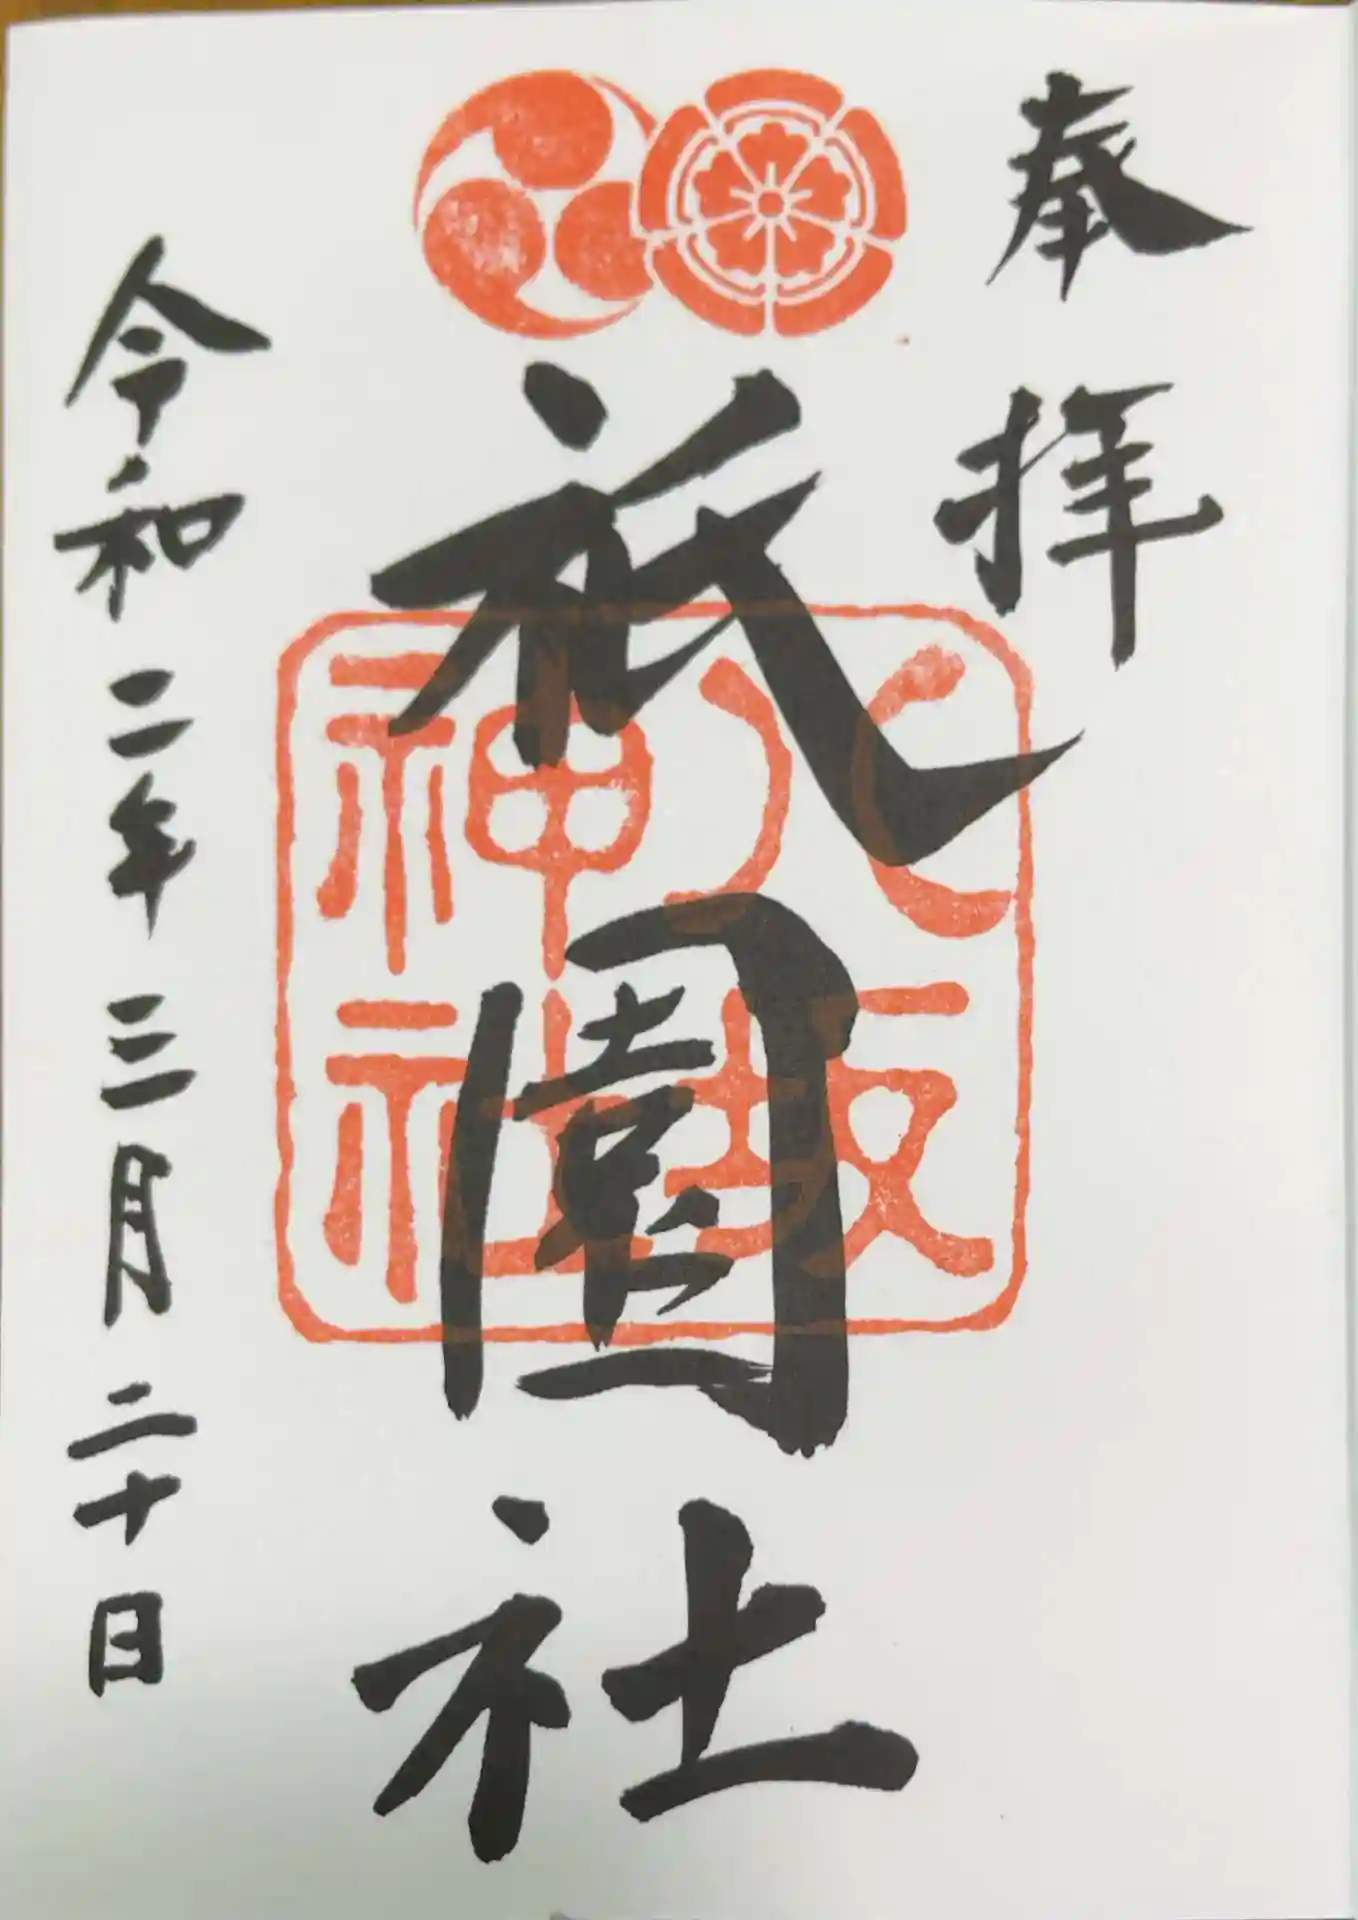 奉拝
祇園社
八坂
神社
令和二年三月二十日